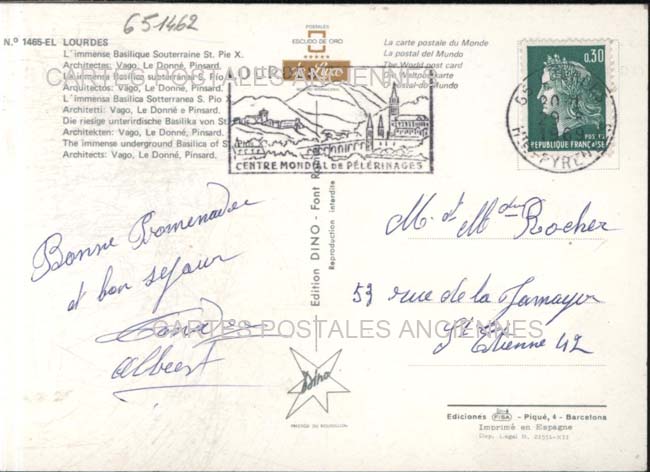 651462
N.º 1465-EL LOURDES
L'immense Basilique Souterraine St. Pie X.
Architectes: Vago, Le Donné, Pinsard.
La immensa Basílica subterránea S. Pío
Arquitectos: Vago, Le Donné, Pinsard.
L'immensa Basilica Sotterranea S. Pio
Architetti: Vago, Le Donné e Pinsard.
Die riesige unterirdische Basilika von St.
Architekten: Vago, Le Donné, Pinsard.
The immense underground Basilica of St.
Architects: Vago, Le Donné, Pinsard.
POSTALES
ESCUDO DE ORO
de Luxe
La carte postale du Monde
La postal del Mundo
The World post card
Die Weltpostkarte
La Postal du Mundo
LOURDES
CENTRE MONDIAL DE PÉLERINAGES
0,30
POSTES
REPUBLIQUE FRANÇAISE
CARTES POSTALES ANCIENNES
Bonne Promenade
et bon séjour
Albert
Edition DINO - Font
Reproduction interdite
M. et Mme Rocher
53 rue de la
St Etienne 42
CARTES POSTALES ANCIENNES
Dino
PRESTIGE DU ROUSSILLON
Ediciones FISA - Piqué, 4 - Barcelona
Imprimé en Espagne
Dep. Legal B. 21551-XII